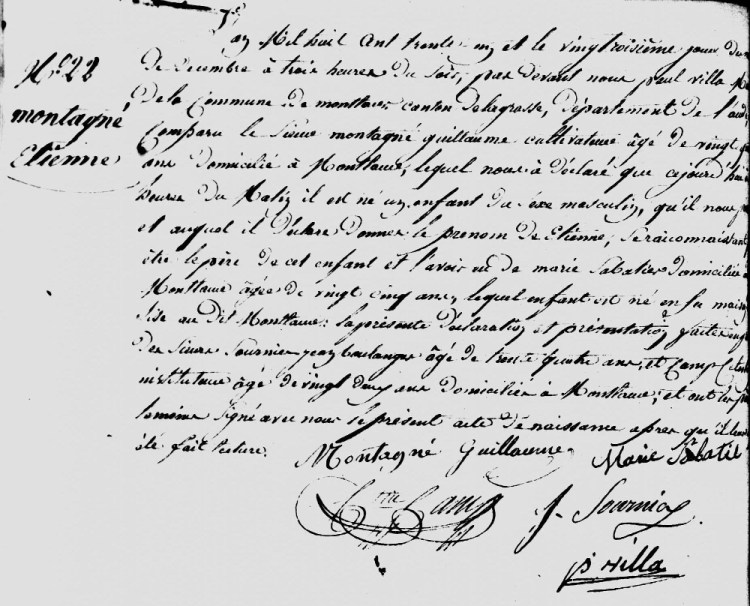 N° 22
montagné
Etienne
L'an Mil huit Cent trente un et le vingtroisième jour du m
de decembre à trois heures du soir, par devant nous paul villa M
de la Commune de montlaur canton de lagrasse, département de l'aud
Comparu le sieur montagné guillaume cultivateur âgé de vingt
ans domicilié à Montlaur, lequel nous à déclaré que cejourd'hui
heures du Matin il est né un enfant du sexe masculin, qu'il nous p
et auquel il déclare donner le prenom de Etienne; se raiconnaissant
être le père de cet enfant et l'avoir eu de marie Sabatier domiciliée à
Montlaur âgée de vingt cinq ans, lequel enfant est né en sa maison
Sise au dit Montlaur: la présente déclaration et présentation faites en p
des sieurs Sournies jean boulanger âgé de trente quatre ans, et Camp
instituteur âgé de vingt deux ans domiciliés à Montlaur; et ont les p
temoins signé avec nous le présent acte de naissance apres qu'il leur
été fait lecture.
Montagné Guillaume Marie Sabatié
Camp J. Sournia
p villa